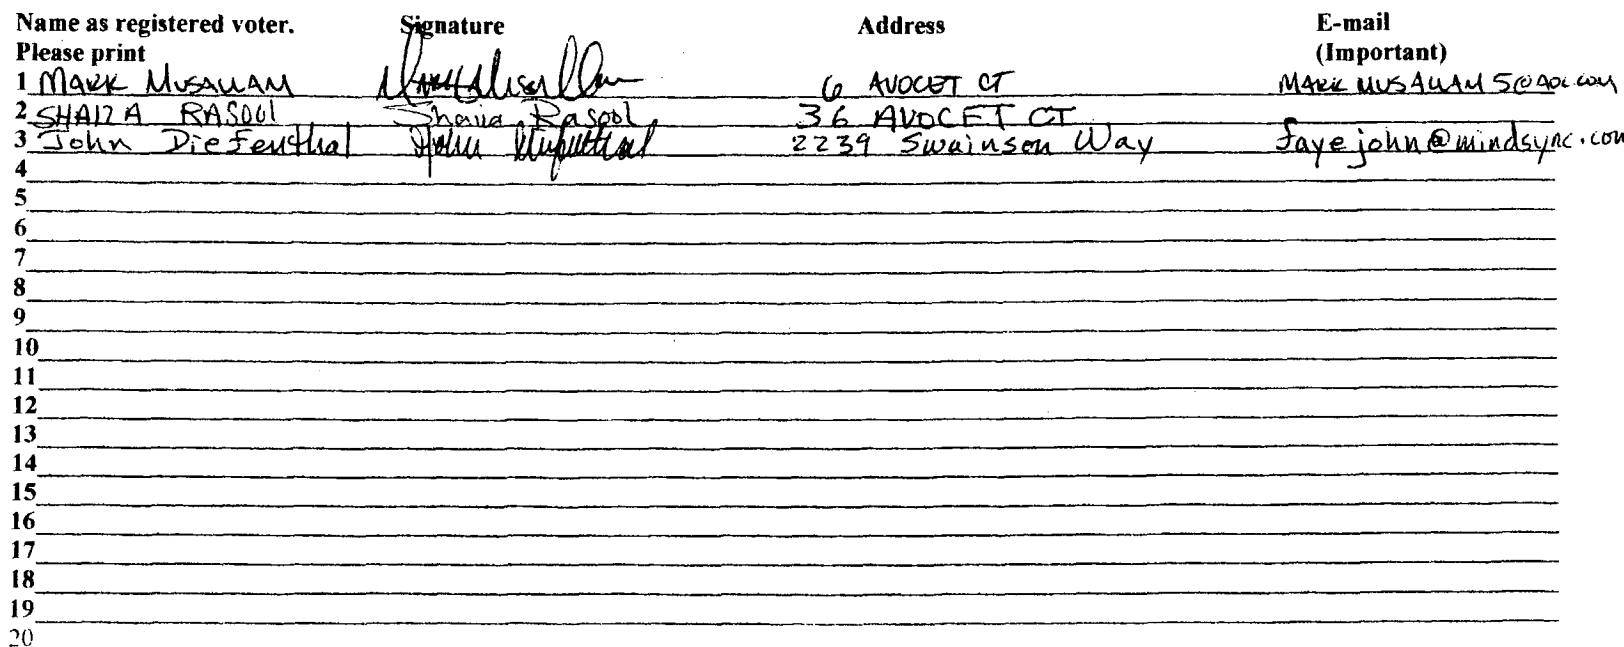 Name as registered voter. Signature Address E-mail
Please print (Important)
1 MARK MUSALLAM Mark Musallam 6 AVOCET CT MARK MUSALLAM5@AOL.COM
2 SHAIZA RASOOL Shaiza Rasool 36 AVOCET CT
3 John Diefenthal John Diefenthal 2239 Swainson Way fayejohn@mindsync.com
4
5
6
7
8
9
10
11
12
13
14
15
16
17
18
19
20